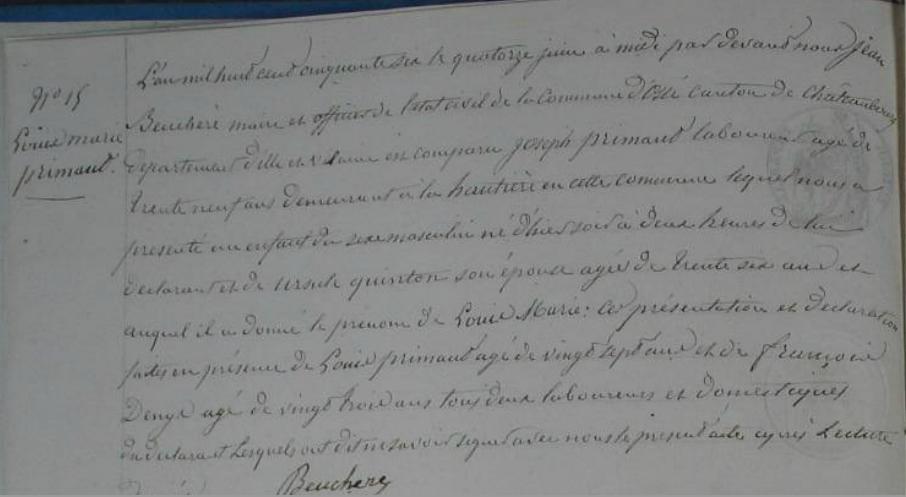 N° 15
Louis marie
primault.
L'an mil huit cent cinquante six le quatorze juin à midi par devant nous Jean
Beucheré maire et officier de l'état civil de la Commune d'Ossé canton de Châteaubourg
département d'ille et vilaine est comparu joseph primault laboureur agé de
trente neuf ans demeurant à la hautière en cette commune lequel nous a
presenté un enfant du sexe masculin né d'hier soir à deux heures de lui
declarant et de ursule quinton son épouse agée de trente six ans et
auquel il a donné le prénom de Louis Marie; Ces présentation et declaration
faites en présence de Louis primault agé de vingt sept ans et de françois
agé de vingt trois ans tous deux laboureurs et domestiques
du declarant Lesquels ont dit ne savoir signer avec nous le present acte après Lecture
Beucheré